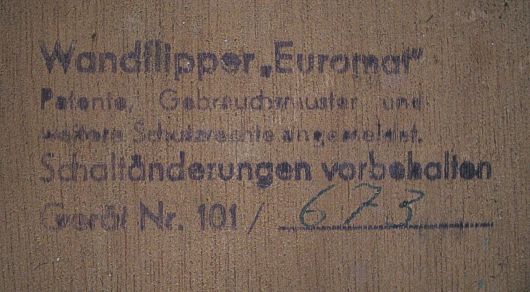 Wandflipper „Euromat"
Patente, Gebrauchsmuster und
weitere Schutzrechte angemeldet.
Schaltänderungen vorbehalten
Gerät Nr. 101 / 673